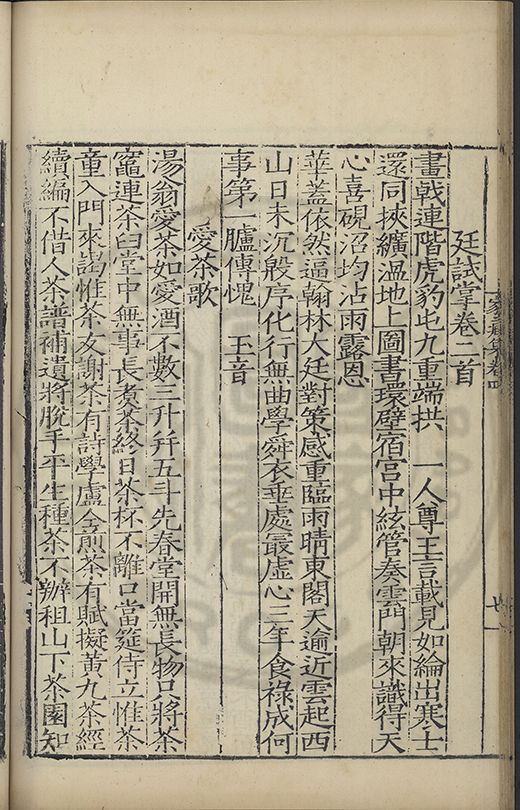 家藏集卷四
廷試掌卷二首
畫戟連階虎豹屯九重端拱　一人尊王言載見如綸出寒士
還同挾纊溫地上圖書環壁宿宮中絃管奏雲門朝來識得天
心喜硯沼均沾雨露恩
華盖依然逼翰林大廷對策感重臨雨晴東閣天逾近雲起西
山日未沉殷序化行無曲學舜衣垂處最虛心三年食祿成何
事第一臚傳愧　玉音
愛茶歌
湯翁愛茶如愛酒不數三升并五斗先春堂開無長物只將茶
竈連茶臼堂中無事長煮茶終日茶杯不離口當筵侍立惟茶
童入門來謁惟茶友謝茶有詩學盧仝煎茶有賦擬黃九茶經
續編不借人茶譜補遺將脫手平生種茶不辦租山下茶園知